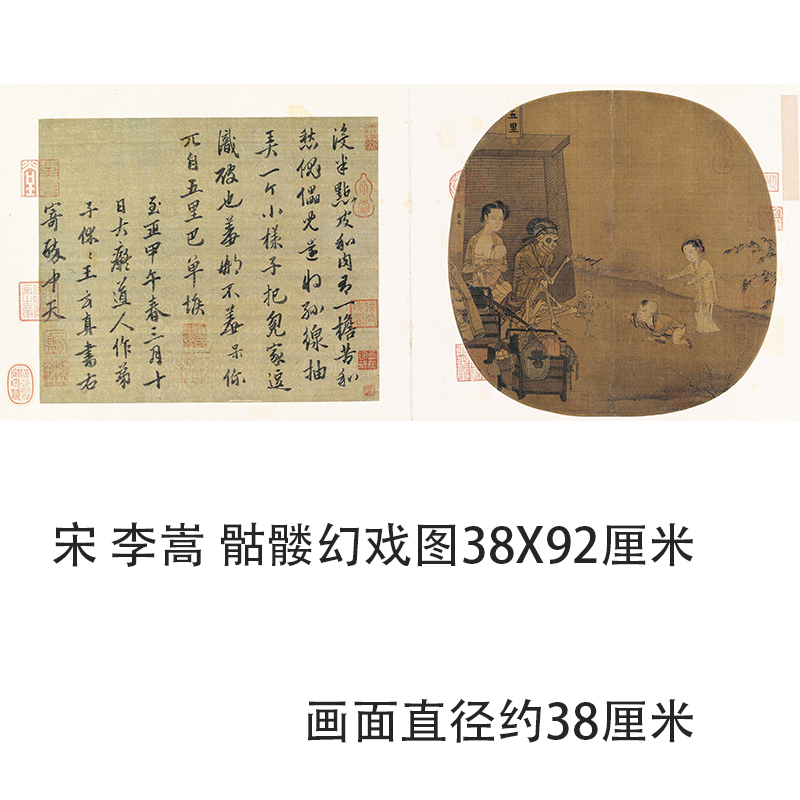 没半點皮和肉有一擔苦和
愁傀儡兒還將絲線抽
弄一个小樣子把冤家逗
識破也羞那不羞呆你
兀自五里巴單堠
至正甲午春三月十
日大癡道人作弟
子休々王玄真書右
寄醉中天
五里
宋 李嵩 骷髅幻戏图38X92厘米
画面直径约38厘米